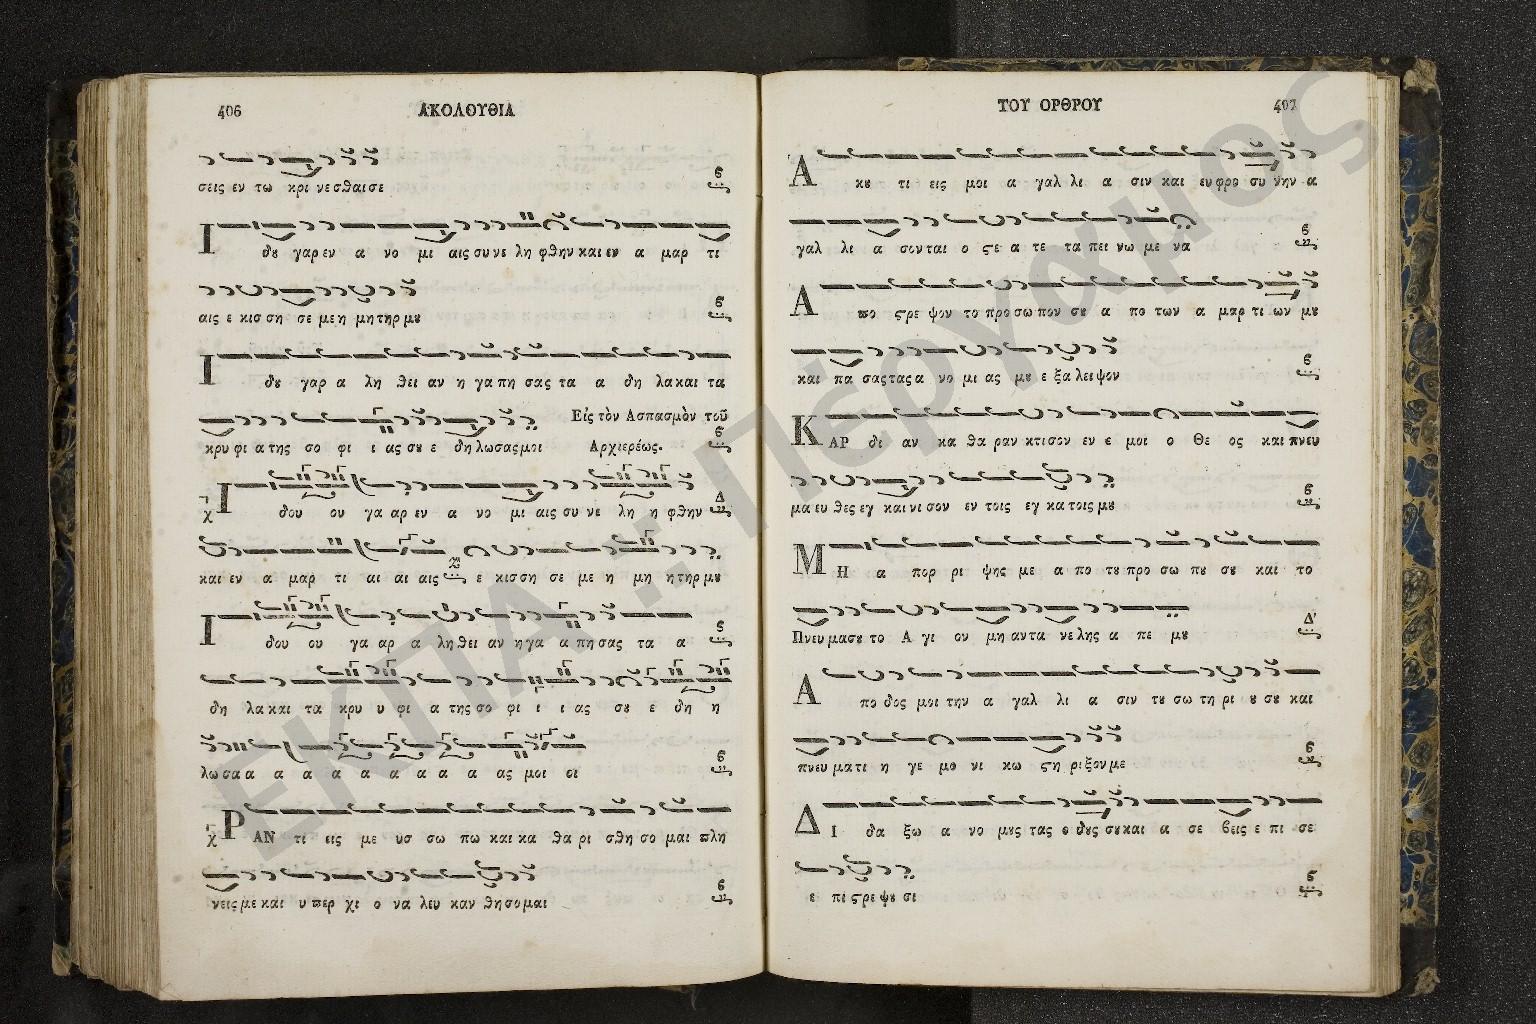 406
ΑΚΟΛΟΥΘΙΑ
σεις εν τω κρι νεσθαισε
Ι δȣ γαρ εν α νο μι αις συ νε λη φθην και εν α μαρ τι
αις ε κισ ση σε με η μητηρ μȣ
Ι δȣ γαρ α λη θει αν η γα πη σας τα α δη λα και τα
Εἰς τὸν Ασπασμὸν τοῦ
κρυ φι α της σο φι ι ας σȣ ε δη λωσας μοι Αρχιερέως.
Ι δου ου γα αρ εν α νο μι αις συ νε λη η φθην
και εν α μαρ τι αι αι αις ε κισ ση σε με η μη ητηρ μȣ
Ι δου ου γα αρ α λη θει αν ηγα α πη σας τα α
δη λα και τα κρυ υ φι α της σο φι ι ι ας σȣ ε δη η
λω σα α α α α α α α α ας μοι οι
ΡΑΝ τι εις με υσ σω πω και κα θα ρι σθη σο μαι πλη
νεις με και υ περ χι ο να λευ καν θησομαι
ΤΟΥ ΟΡΘΡΟΥ
407
Α κȣ τι εις μοι α γαλ λι α σιν και ευφρο συ νην α
γαλ λι α σονται ο ϛε α τε τα πει νω με να
Α πο ϛρε ψον το προσωπον σȣ α πο των α μαρ τι ων μȣ
και πα σας τας α νο μι ας μȣ ε ξαλειψον
ΚΑΡ δι αν κα θα ραν κτισον εν ε μοι ο Θε ος και πνευ
μα ευ θες εγ και νι σον εν τοις εγ κατοις μȣ
ΜΗ α πορ ρι ψης με α πο τȣ προ σω πȣ σȣ και το
Πνευμασȣ το Α γι ον μη αντα νε λης α πε μȣ
Α πο δος μοι την α γαλ λι α σιν τȣ σω τη ρι ȣ σȣ και
πνευ ματι η γε μο νι κω ϛη ριξον με
ΔΙ δα ξω α νο μȣς τας ο δȣς σȣ και α σε βεις ε πι σε
ε πι ϛρε ψȣ σι
ΕΚΠΑ ... Πέργαμος